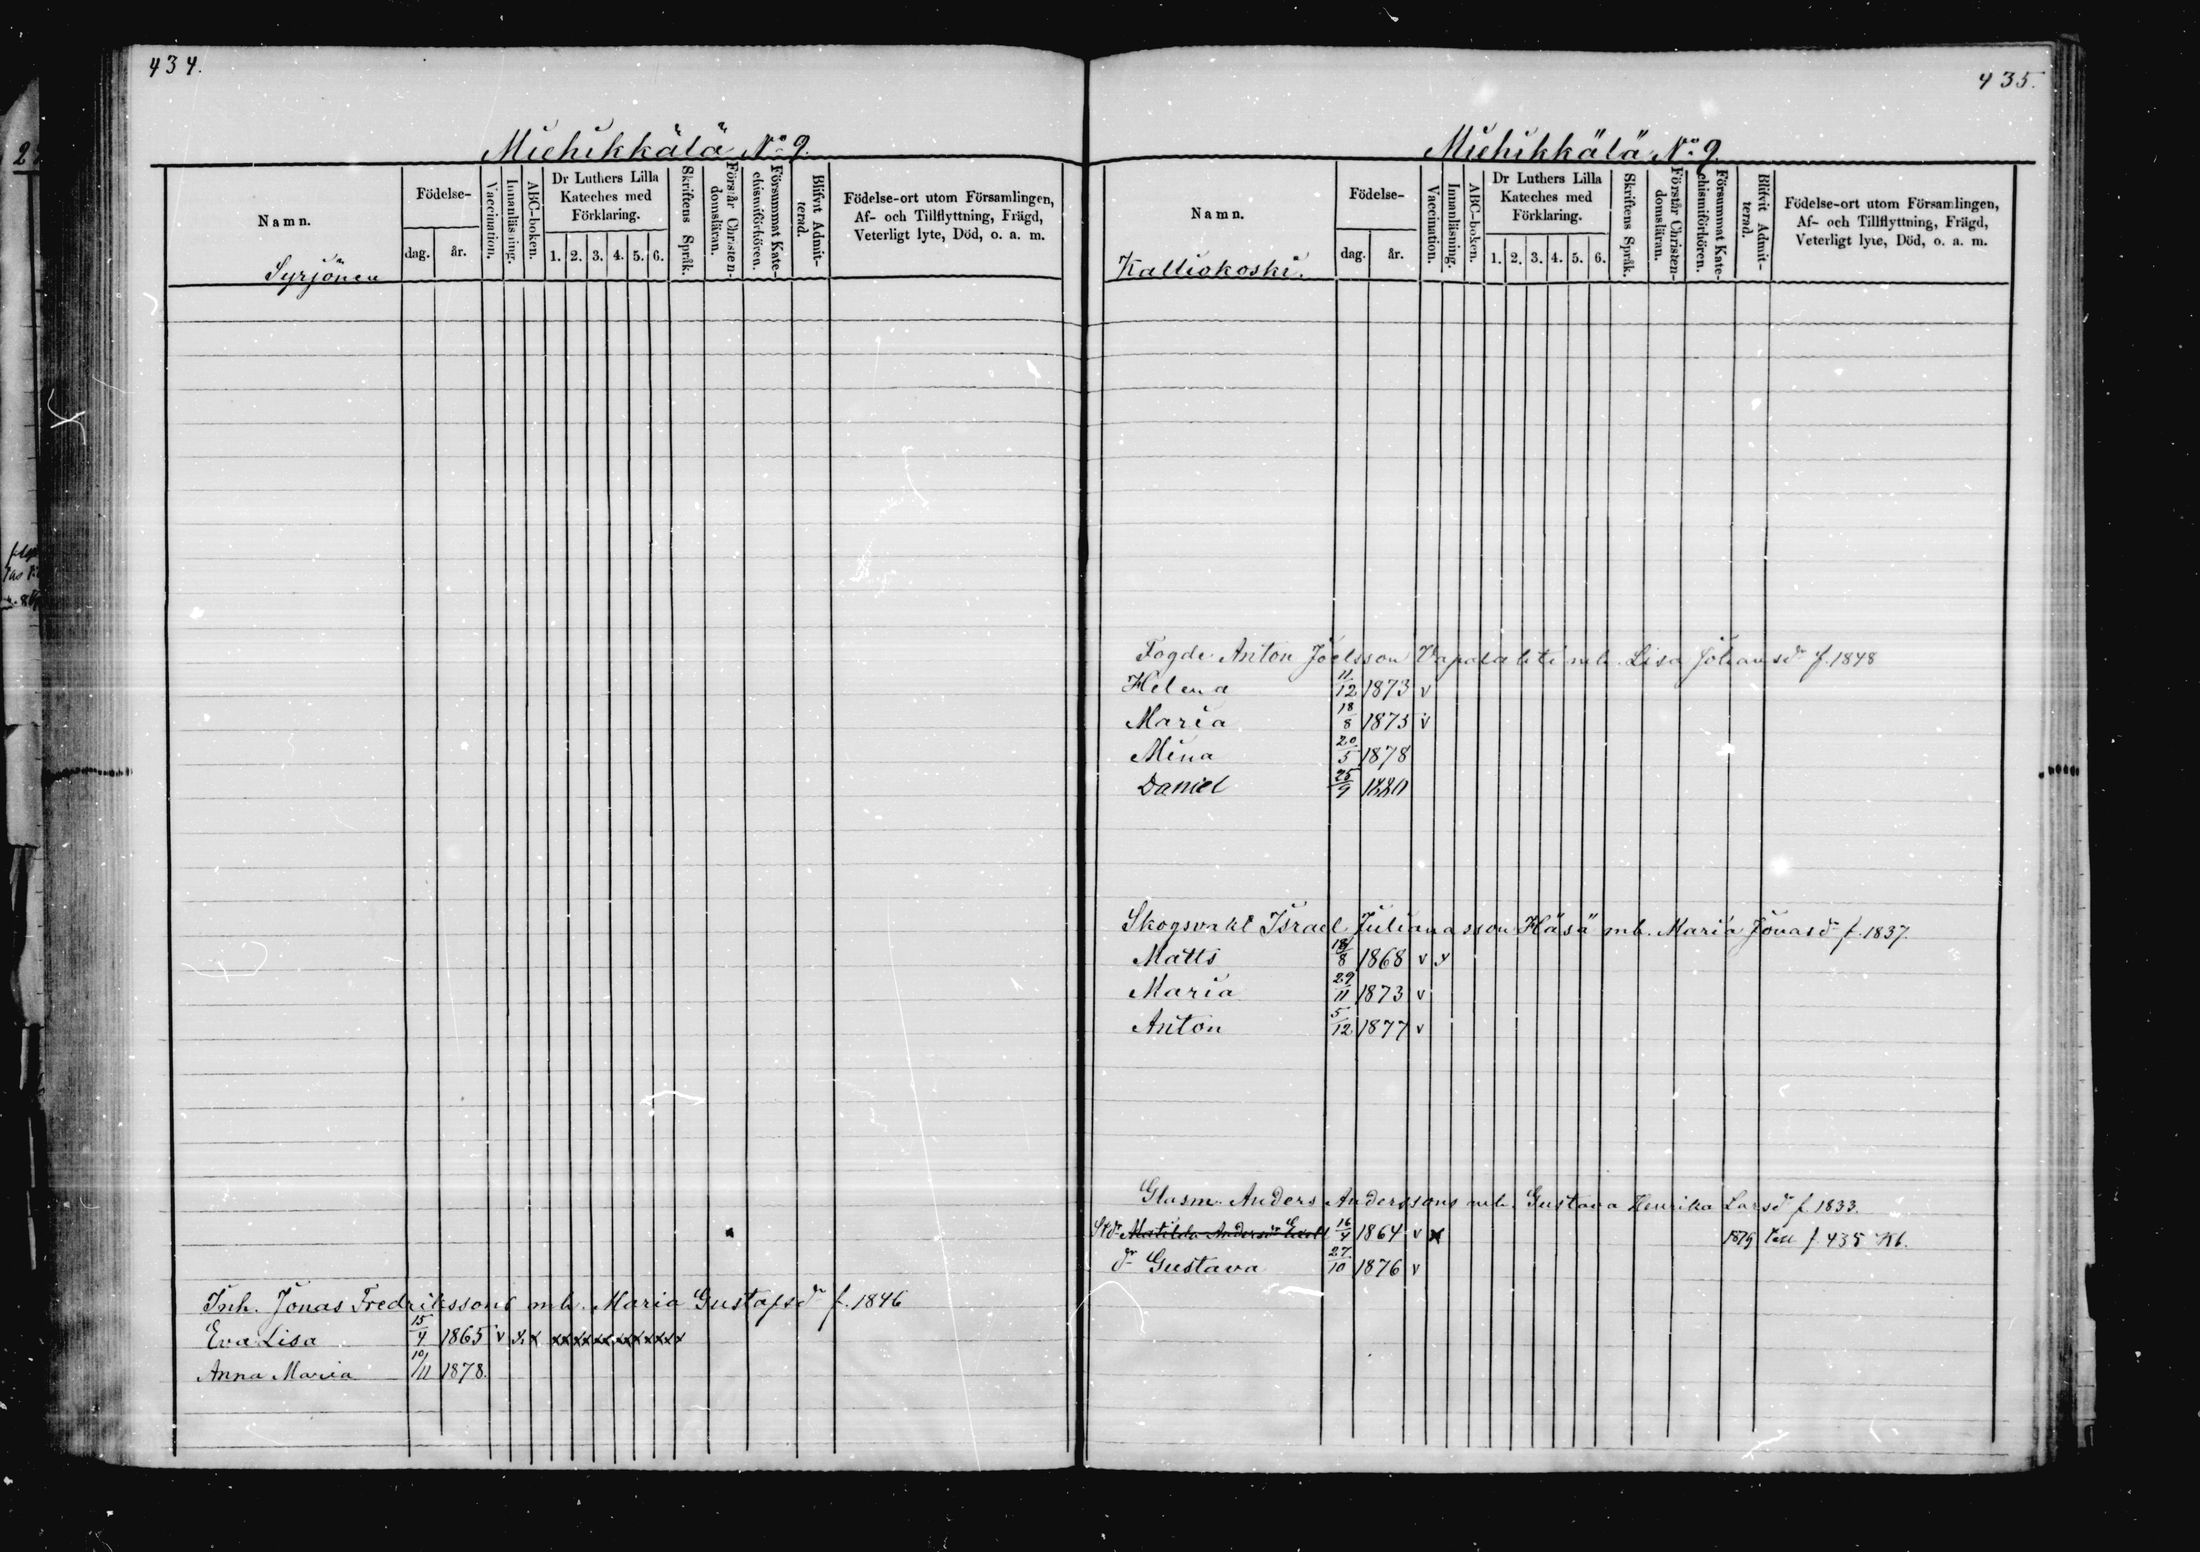 434.
Miehikkälä No 9.
Namn.
Födelse-
dag. år.
Vaccination.
Innanläsning.
ABC-boken.
Dr Luthers Lilla Kateches med Förklaring.
1. 2. 3. 4. 5. 6.
Skriftens Språk.
Förstår Christendomsläran.
Försummat Katechismiförhören.
Blifvit Admitterad.
Födelse-ort utom Församlingen,
Af- och Tillflyttning, Frägd,
Veterligt lyte, Död, o. a. m.
Syrjönen
Inh. Jonas Fredrikssons mh. Maria Gustafsdr f. 1846
Eva Lisa 15/4 1865 v x x xx xx xx xx xx xx
Anna Maria 10/11 1878.
435.
Miehikkälä No 9
Namn.
Födelse-
dag. år.
Vaccination.
Innanläsning.
ABC-boken.
Dr Luthers Lilla Kateches med Förklaring.
1. 2. 3. 4. 5. 6.
Skriftens Språk.
Förstår Christendomsläran.
Försummat Katechismiförhören.
Blifvit Admitterad.
Födelse-ort utom Församlingen,
Af- och Tillflyttning, Frägd,
Veterligt lyte, Död, o. a. m.
Kalliokoski.
Fogde Anton Joelsson Vapalahti mh. Lisa Johansdr f. 1848
Helena 11/12 1873 v
Maria 18/8 1873 v
Mina 20/5 1878
Daniel 25/9 1880
Skogsvakt Israel Julianasson Häsä mh. Maria Jonasdr f. 1837.
Matts 18/8 1868 v x
Maria 29/11 1873 v
Anton 5/12 1877 v
Glasm. Anders Anderssons mh. Gustava Henrika Larsdr f. 1833.
Matilda Andersdr 16/4 1864 v x 1879 f. 435 Kb.
dr Gustava 27/10 1876 v